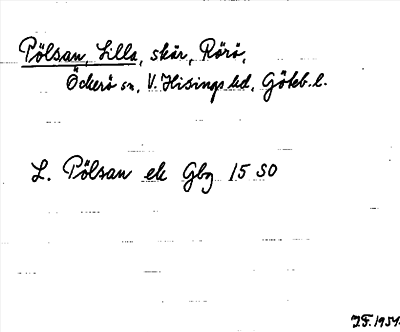 Pölsan, Lilla, skär, Rörö,
Öckerö sn, V. Hisings hd, Göteb. l.
L. Pölsan ek Gbg 15 SO
1951.